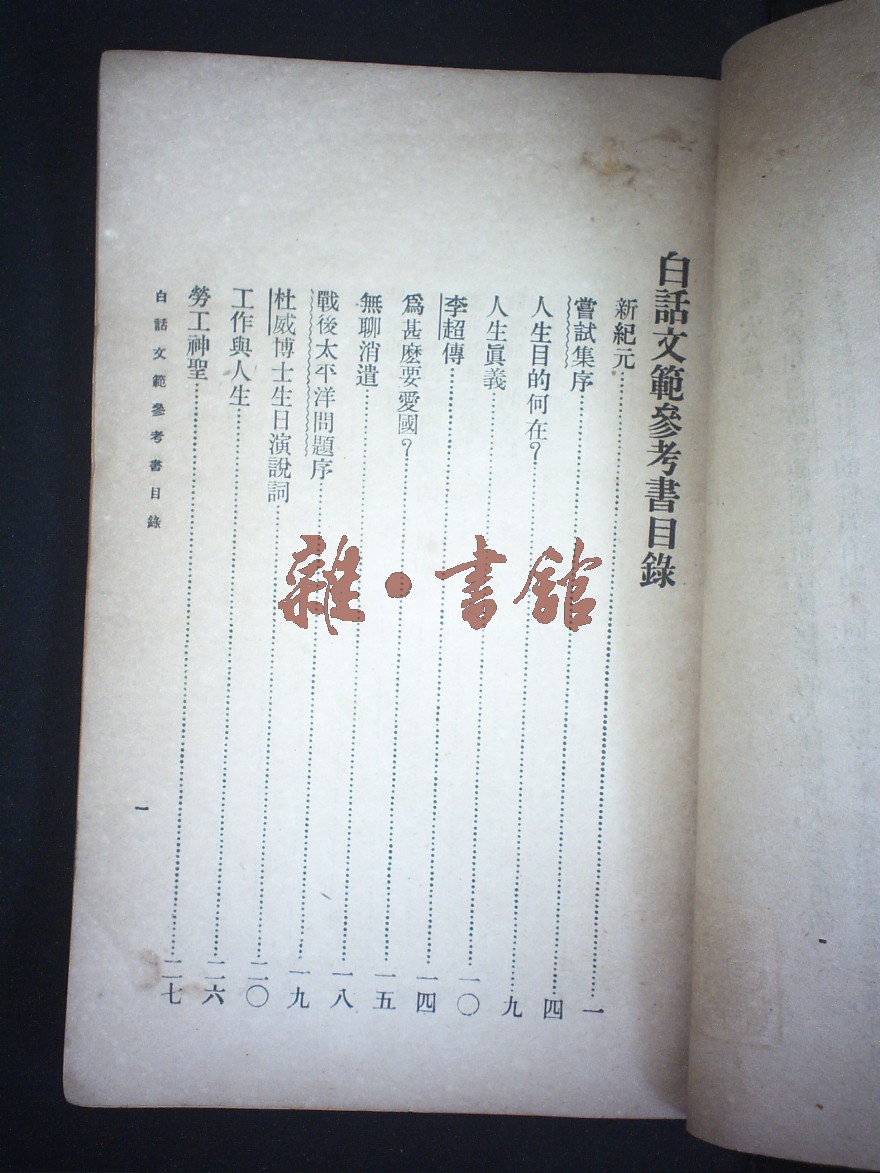 白話文範參考書目錄
新紀元……一
嘗試集序……四
人生目的何在?……九
人生眞義……一〇
李超傳……一四
爲甚麽要愛國?……一五
無聊消遣……一八
戰後太平洋問題序……一九
杜威博士生日演說詞……二〇
工作與人生……二六
勞工神聖……二七
白話文範參考書目錄
一
雜·書館